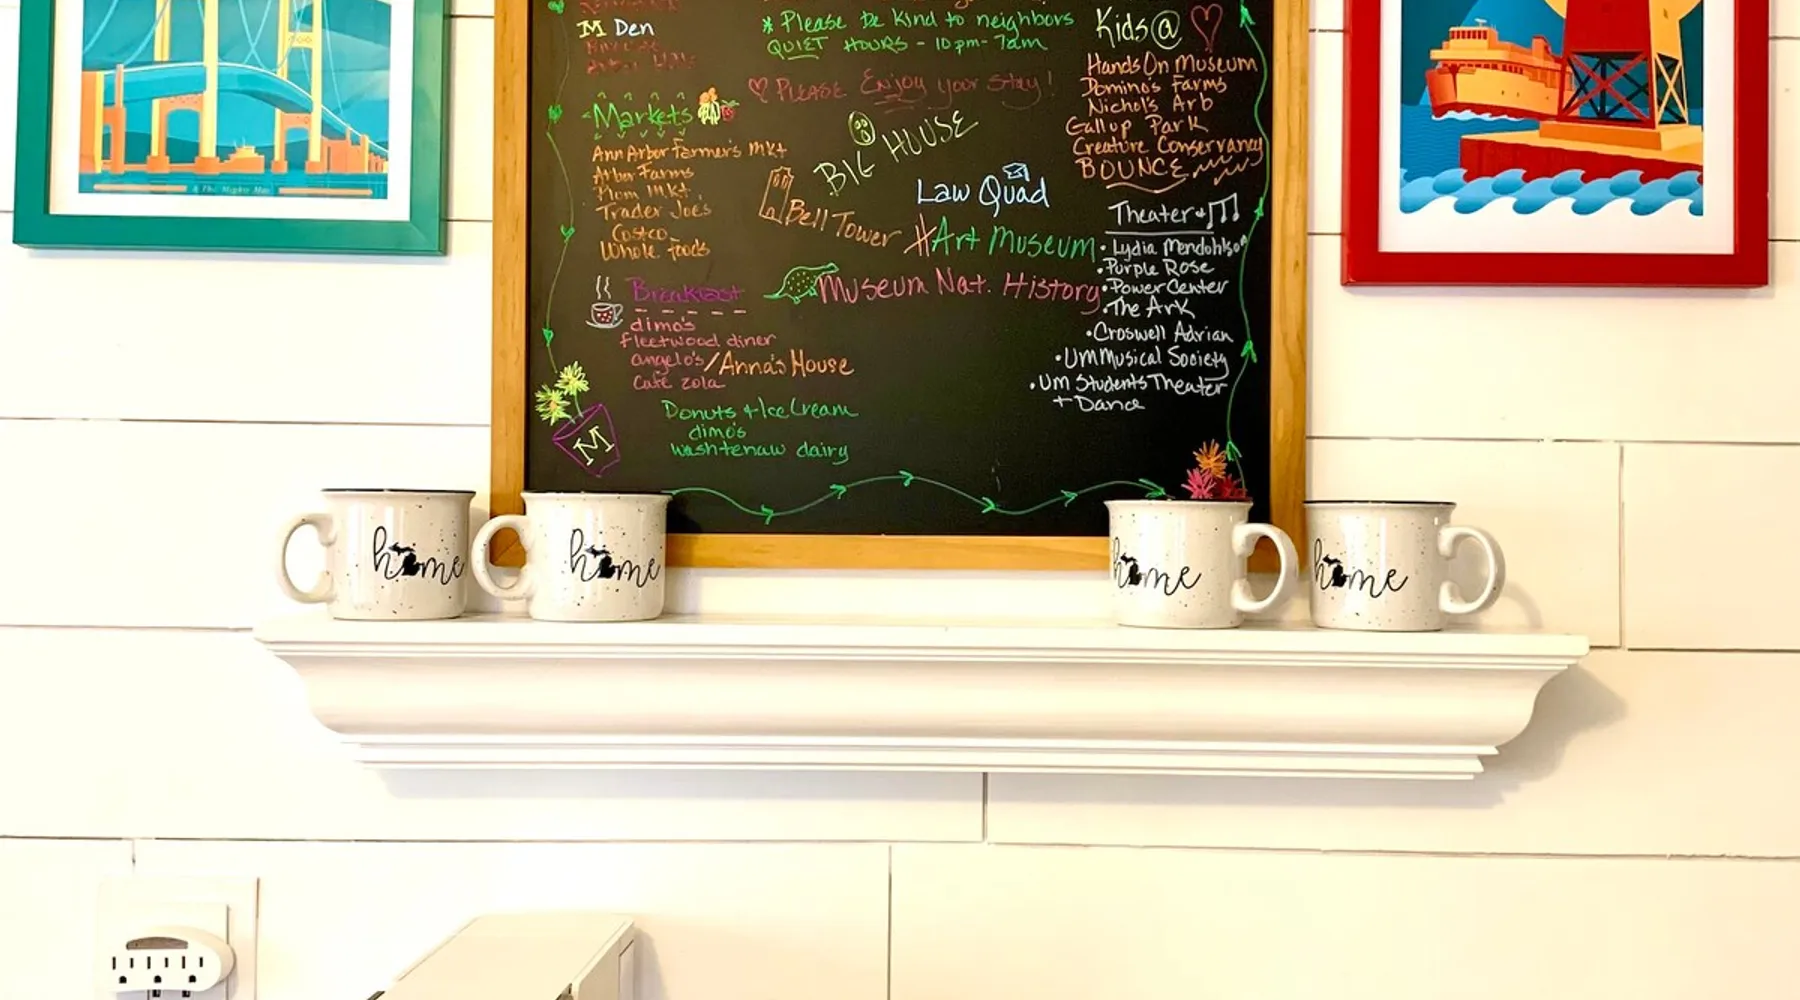 M Den
Markets
Ann Arbor Farmer's Mkt
Arbor Farms
Plum Mkt.
Trader Joe's
Costco
Whole foods
Breakfast
dimo's
fleetwood diner
angelo's / Anna's House
Cafe zola
Donuts + Ice Cream
dimo's
washtenaw dairy
M
* Please be kind to neighbors
QUIET HOURS - 10pm - 7am
PLEASE Enjoy your stay!
BIG HOUSE
Law Quad
Bell Tower
#Art Museum
Museum Nat. History
Kids@
Hands On Museum
Domino's Farms
Nichol's Arb
Gallup Park
Creature Conservancy
BOUNCE
Theater +
• Lydia Mendohlson
• Purple Rose
• Power Center
• The Ark
• Croswell Adrian
• UM Musical Society
• UM Students Theater
+ Dance
home
home
home
home